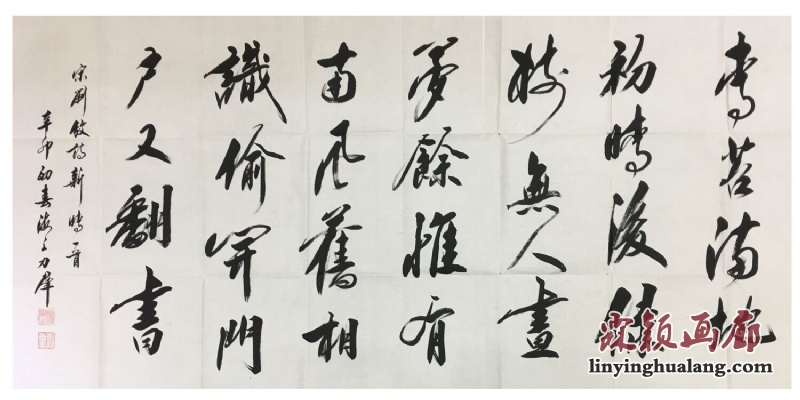 青苔滿地
初晴後綠
樹無人晝
夢餘惟有
南風舊相
識偷開門
户又翻書
宋劉攽詩新晴一首
辛卯初春海上力
霖颖画廊
linyinghualang.com